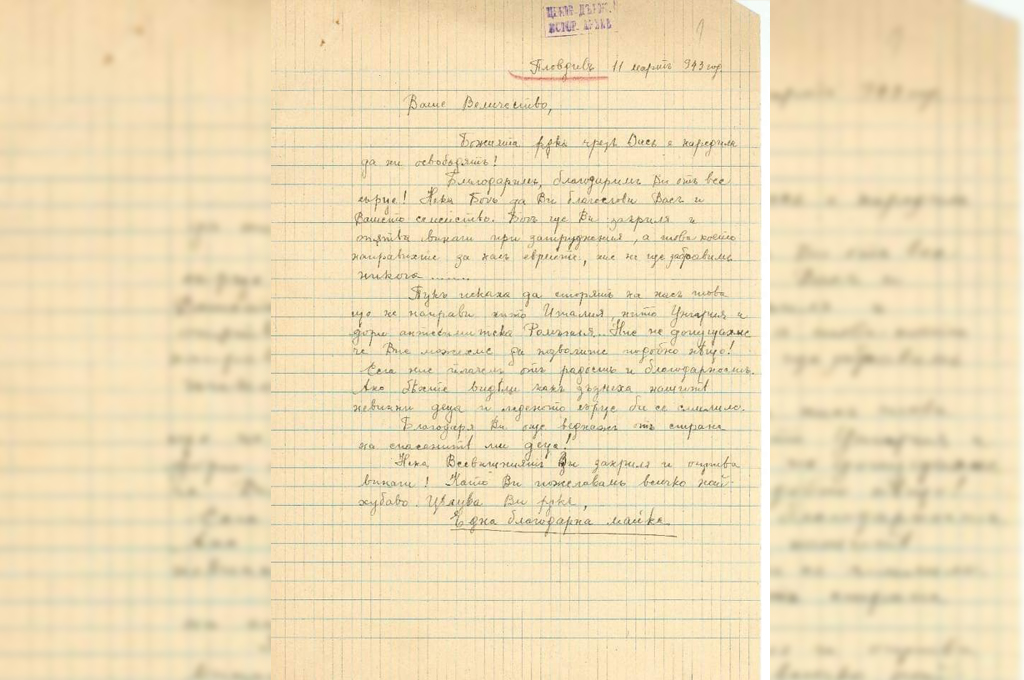 ЦЕНТР. ДЪРЖ.
ИСТОР. АРХИВ
1
Пловдивъ 11 мартъ 943 год.
Ваше Величество,
Божията рѫка чрезъ Васъ е наредила
да ни освободятъ!
Благодаримъ, благодаримъ Ви отъ все
сърце! Нека Богъ да Ви благослови Васъ и
Вашето семейство. Богъ ще Ви закриля и
винаги при затруднения, а това което
направихте за насъ евреите, ние не ще забравимъ
никога.......
Тукъ искаха да сторятъ на насъ това
що не направи нито Италия, нито Унгария и
дори антисемитска Ромъния. Ние не допущахме
че Вие можехте да позволите подобно нѣщо!
Сега ние плачемъ отъ радость и благодарность.
Ако бѣхте видѣли какъ нашитѣ
невинни деца и леденото сърце би се смилило.
Благодаря Ви още веднажъ отъ страна
на спасенитѣ ми деца!
Нека Всевишниятъ Ви закриля и
винаги! Като Ви пожелавамъ всичко най-
хубаво. Целува Ви рѫка,
Една благодарна майка